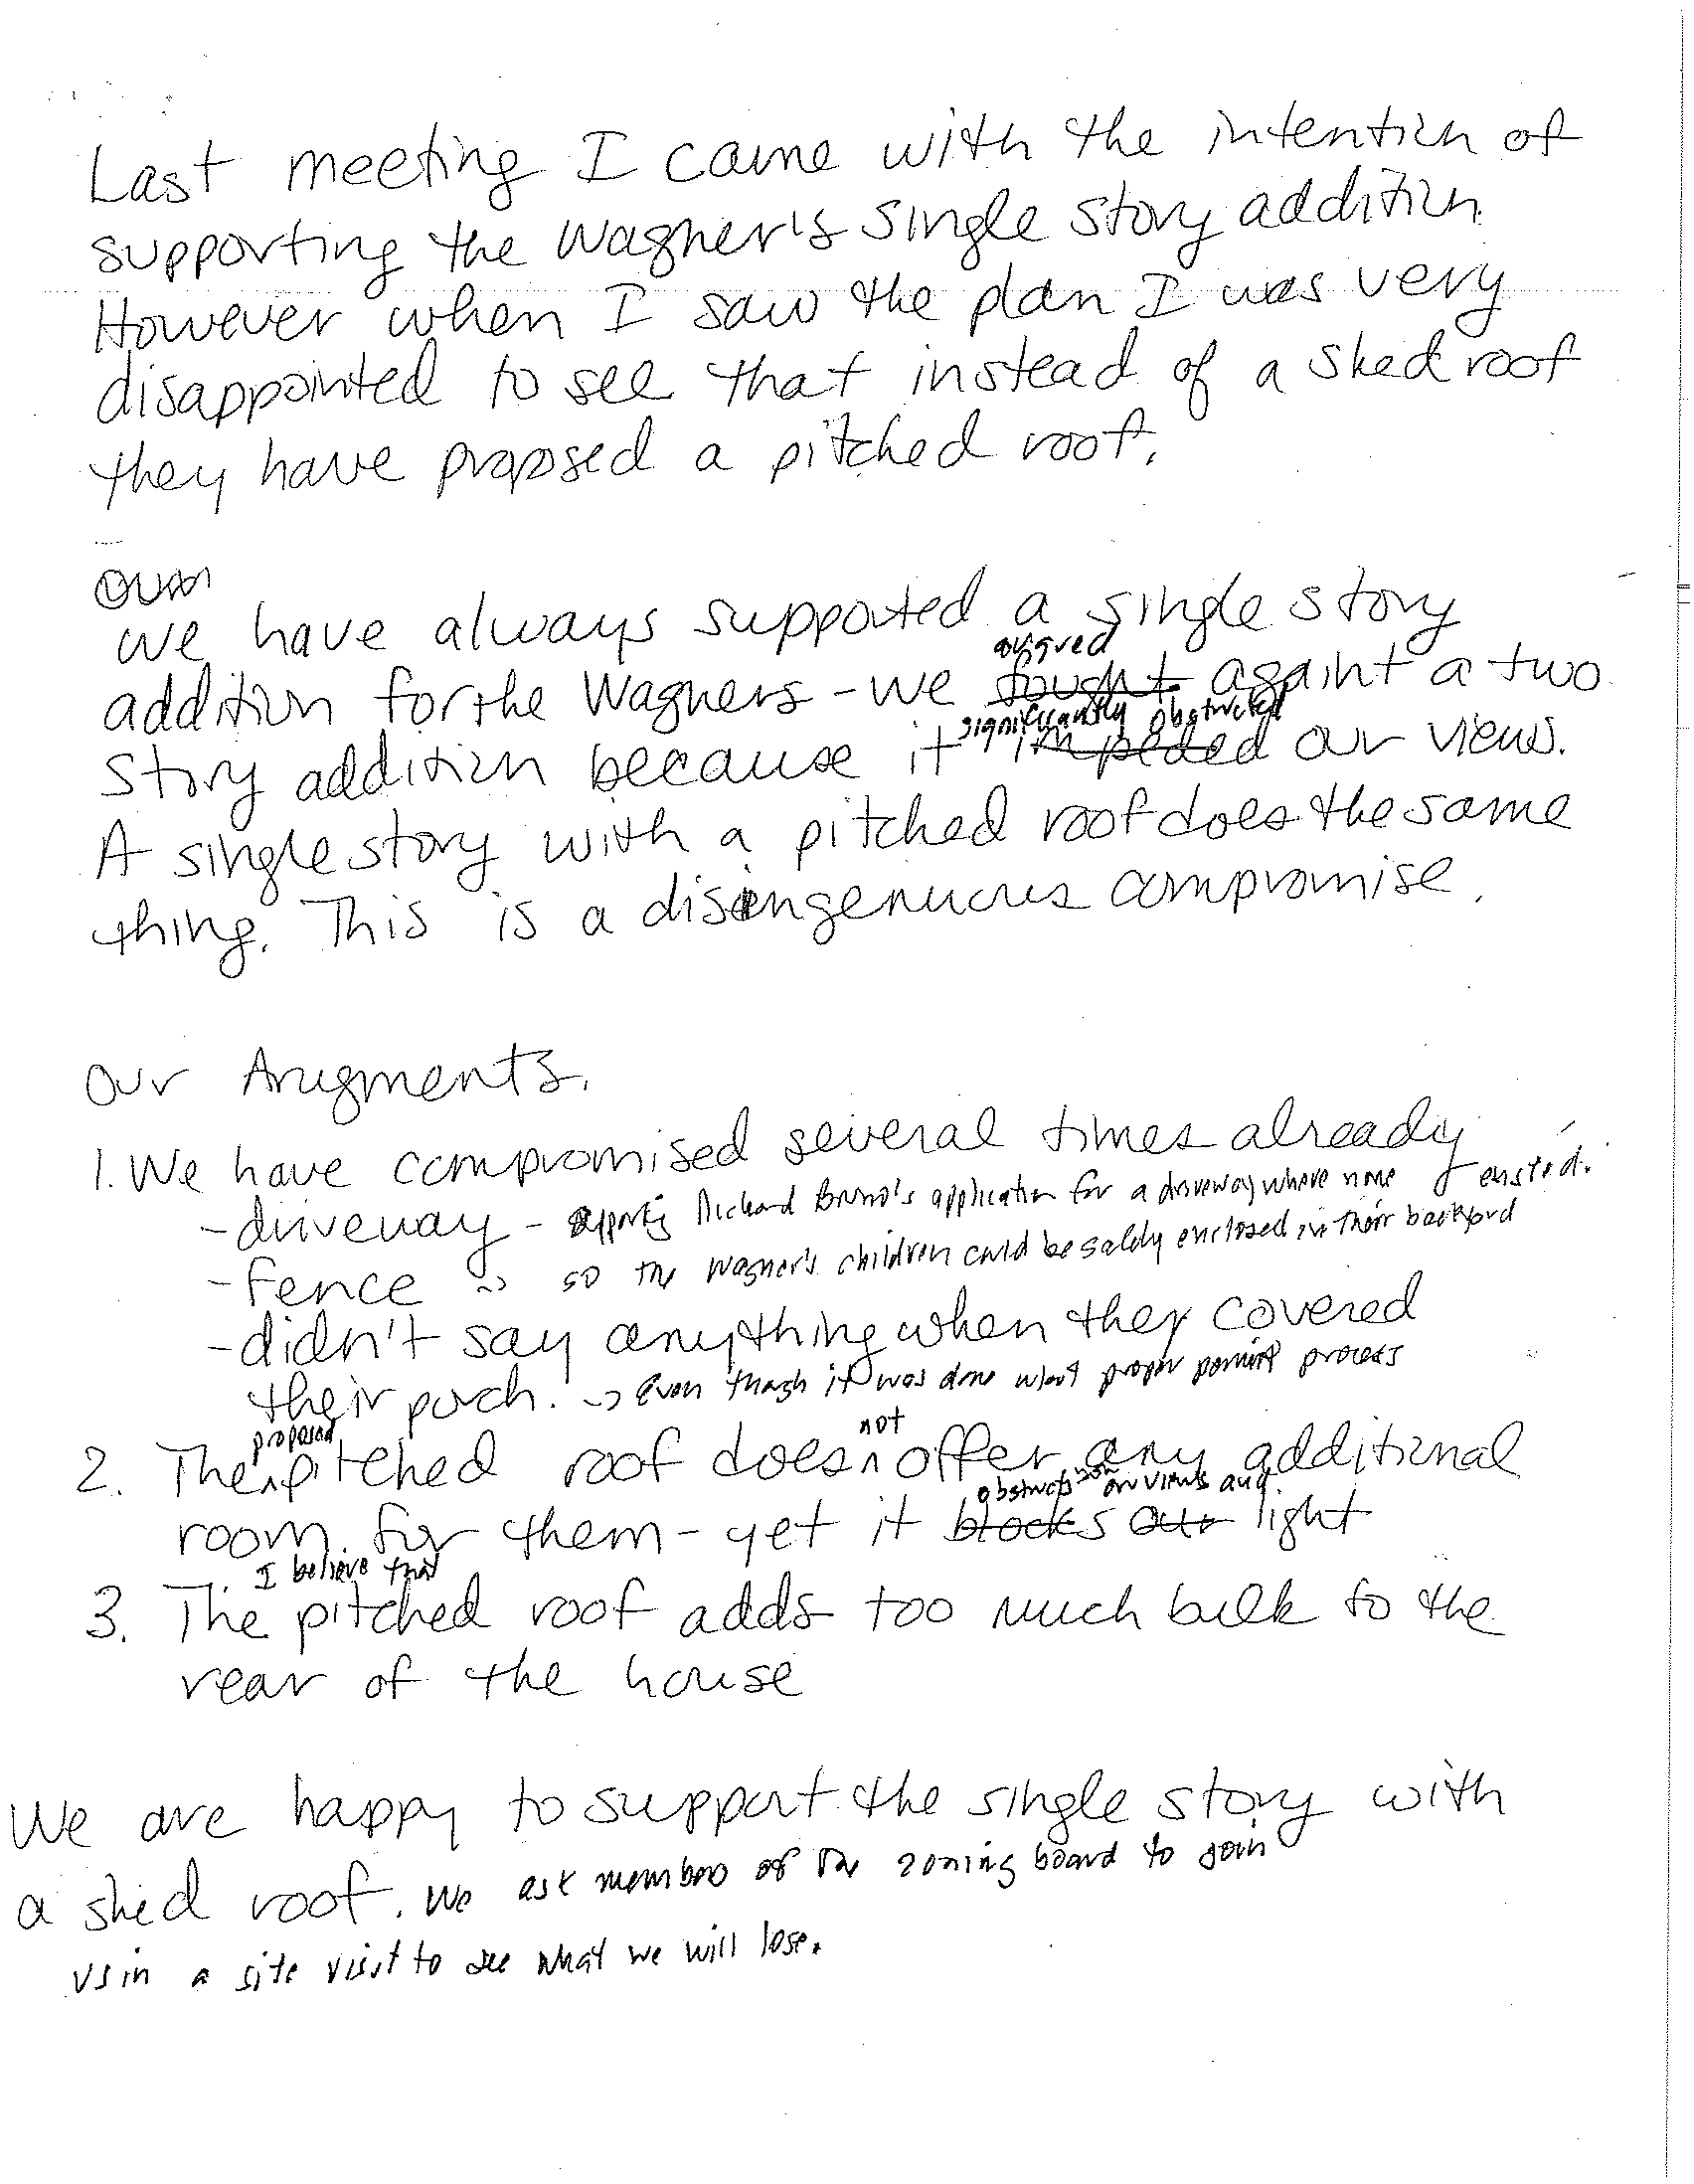 Last meeting I came with the intention of
supporting the Wagner's single story addition.
However when I saw the plan I was very
disappointed to see that instead of a shed roof
they have proposed a pitched roof.
we have always supported a single story
argued
addition for the Wagners - we fought againt a two
significantly obstructed
story addition because it impeded our view.
A single story with a pitched roof does the same
thing. This is a disingenuous compromise.
Our Arugments.
1. We have compromised several times already
- driveway - Richard Bruno's application for a driveway where none existed.
- fence -> so the Wagner's children could be safely enclosed in their backyard
- didn't say anything when they covered
their porch. -> Even though it was done w/out proper permit process
proposed not
2. The pitched roof does offer any additional
obstructs our views and
room for them - yet it blocks our light
I believe that
3. The pitched roof adds too much bulk to the
rear of the house
We are happy to support the single story with
a shed roof. We ask members of the zoning board to join
us in a site visit to see what we will lose.